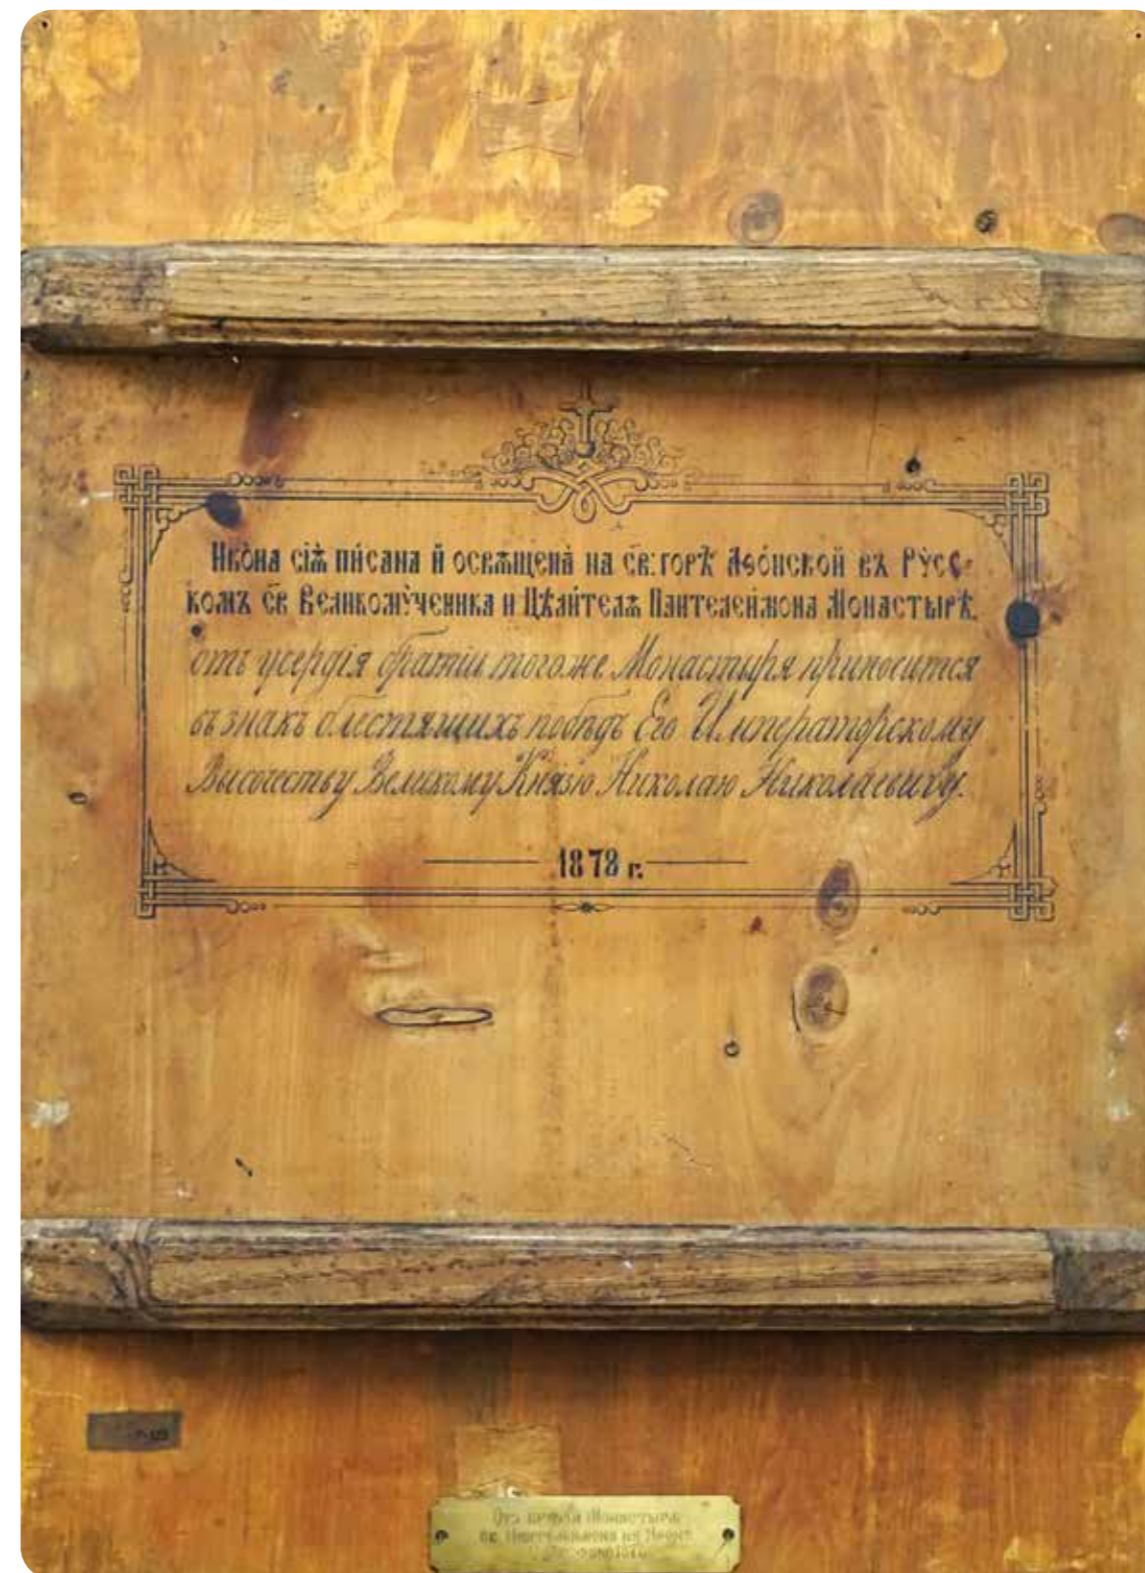 Икѡ́на сіѧ̀ пи́сана и҆ ѡсвѧщена̀ на св: горѣ Аѳо́нской въ Ру́сс-
комъ св Великому́ченика и Цѣли́телѧ Пантелеи́мона Монастырѣ.
отъ усердія братіи тогоже Монастыря приносится
въ знакъ блестящихъ побѣдъ Его Императорскому
Высочеству Великому Князю Николаю Николаевичу.
1878 г.
Отъ братіи Монастырѧ
св Пантелеимона на Аѳонѣ